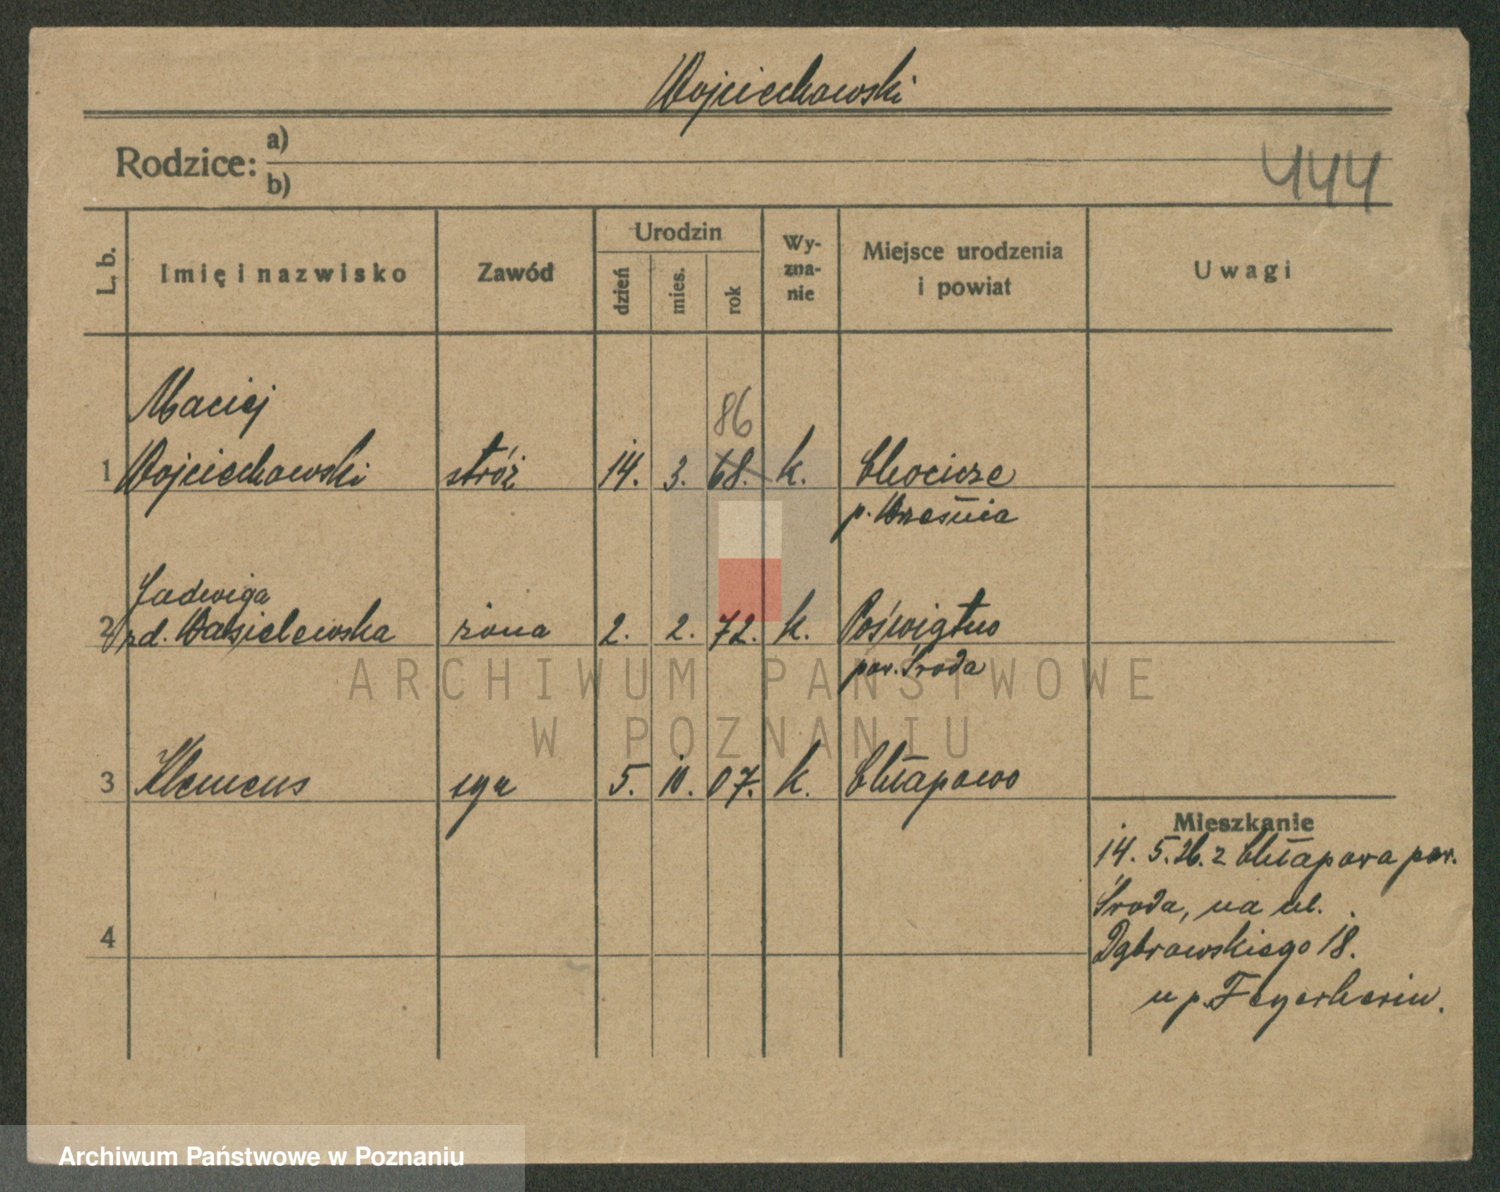 Wojciechowski
Rodzice: a)
b)
444
L. b.
Imię i nazwisko
Zawód
Urodzin
dzień
mies.
rok
Wy-
zna-
nie
Miejsce urodzenia
i powiat
Uwagi
Maciej
86
1 Wojciechowski stróż 14. 3. 68. k. Chocicze
p. Września
Jadwiga
2 zd. żona 2. 2. 72. k. Poświątno
pow. Środa
3 Klemens syn 5. 10. 07. k. Chłapowo
Mieszkanie
14. 5. 26. z Chłapowa pow.
Środa, na ul.
4
Dąbrowskiego 18.
u p.
ARCHIWUM PAŃSTWOWE
W POZNANIU
Archiwum Państwowe w Poznaniu